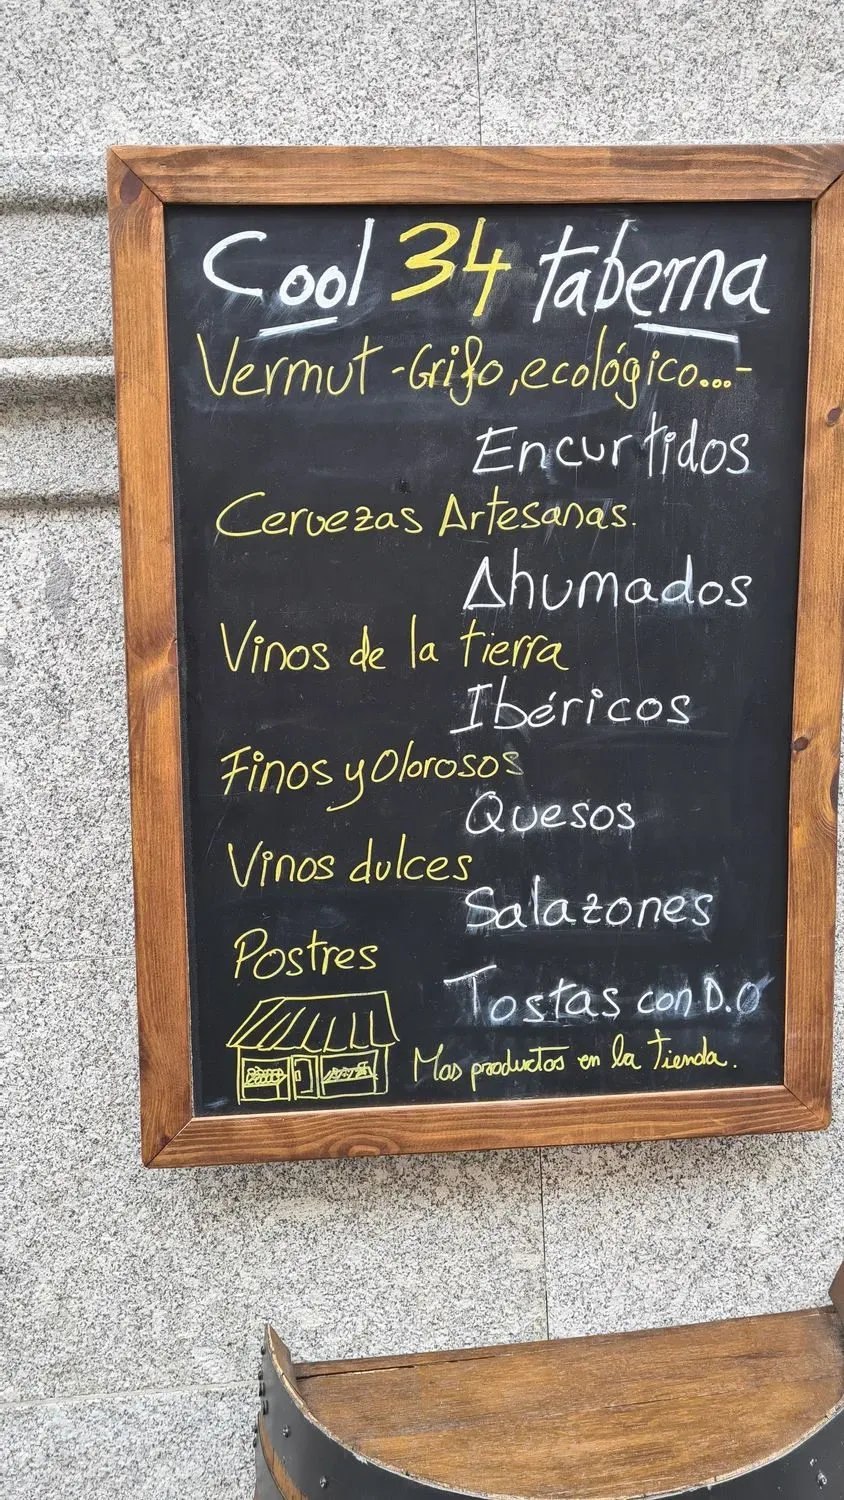 Cool 34 taberna
Vermut -Grifo, ecológico...-
Encurtidos
Cervezas Artesanas.
Ahumados
Vinos de la tierra
Ibéricos
Finos y Olorosos
Quesos
Vinos dulces
Salazones
Postres
Tostas con D.O
Mas productos en la tienda.